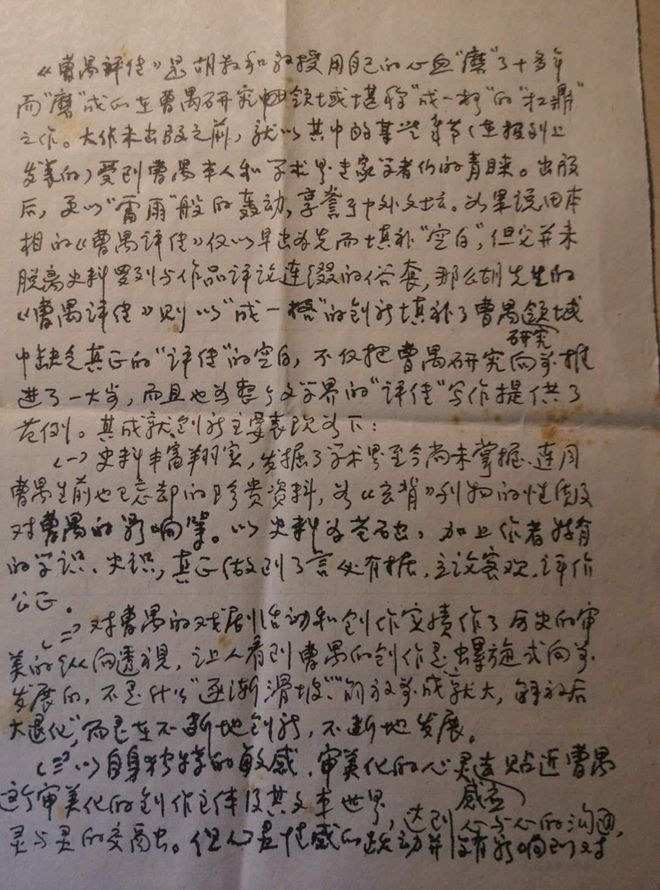 《曹禺评传》是胡叔和教授用自己的心血"磨"了十多年
而"磨"成的在曹禺研究中领域堪称"成一格"的"扛鼎"
之作。大作未出版之前，就以其中的某些章节（在报刊上
发表的）受到曹禺本人和学术界专家学者们的青睐。出版
后，更以"雷雨"般的轰动，享誉了中外文坛。如果说田本
相的《曹禺评传》仅以早出为先而填补"空白"，但它并未
脱离史料罗列与作品评论连缀的俗套，那么胡先生的
《曹禺评传》则以"成一格"的创新填补了曹禺领域
研究
中缺乏真正的"评传"的空白，不仅把曹禺研究向前推
进了一大步，而且也为整个文学界的"评传"写作提供了
范例。其成就创新主要表现如下：
（一）史料丰富翔实，发掘了学术界至今尚未掌握、连同
曹禺生前也已忘却的珍贵资料，为《玄背》刊物的性质及
对曹禺的影响等。以史料为基础，加上作者特有
的学识、史识，真正做到了言必有据，立论客观，评价
公正。
（二）对曹禺的戏剧活动和创作实绩作了历史的审
美的纵向透视，让人看到曹禺的创作是螺旋式向前
发展的，不是什么"逐渐滑坡"、"解放前成就大，解放后
大退化"，而是在不断地创新，不断地发展。
（三）以自身独特的敏感、审美化的心灵去贴近曹禺
这个审美化的创作主体及其文本世界，达到心与心的沟通，
灵与灵的交融。但是情感的跃动并没有影响到对